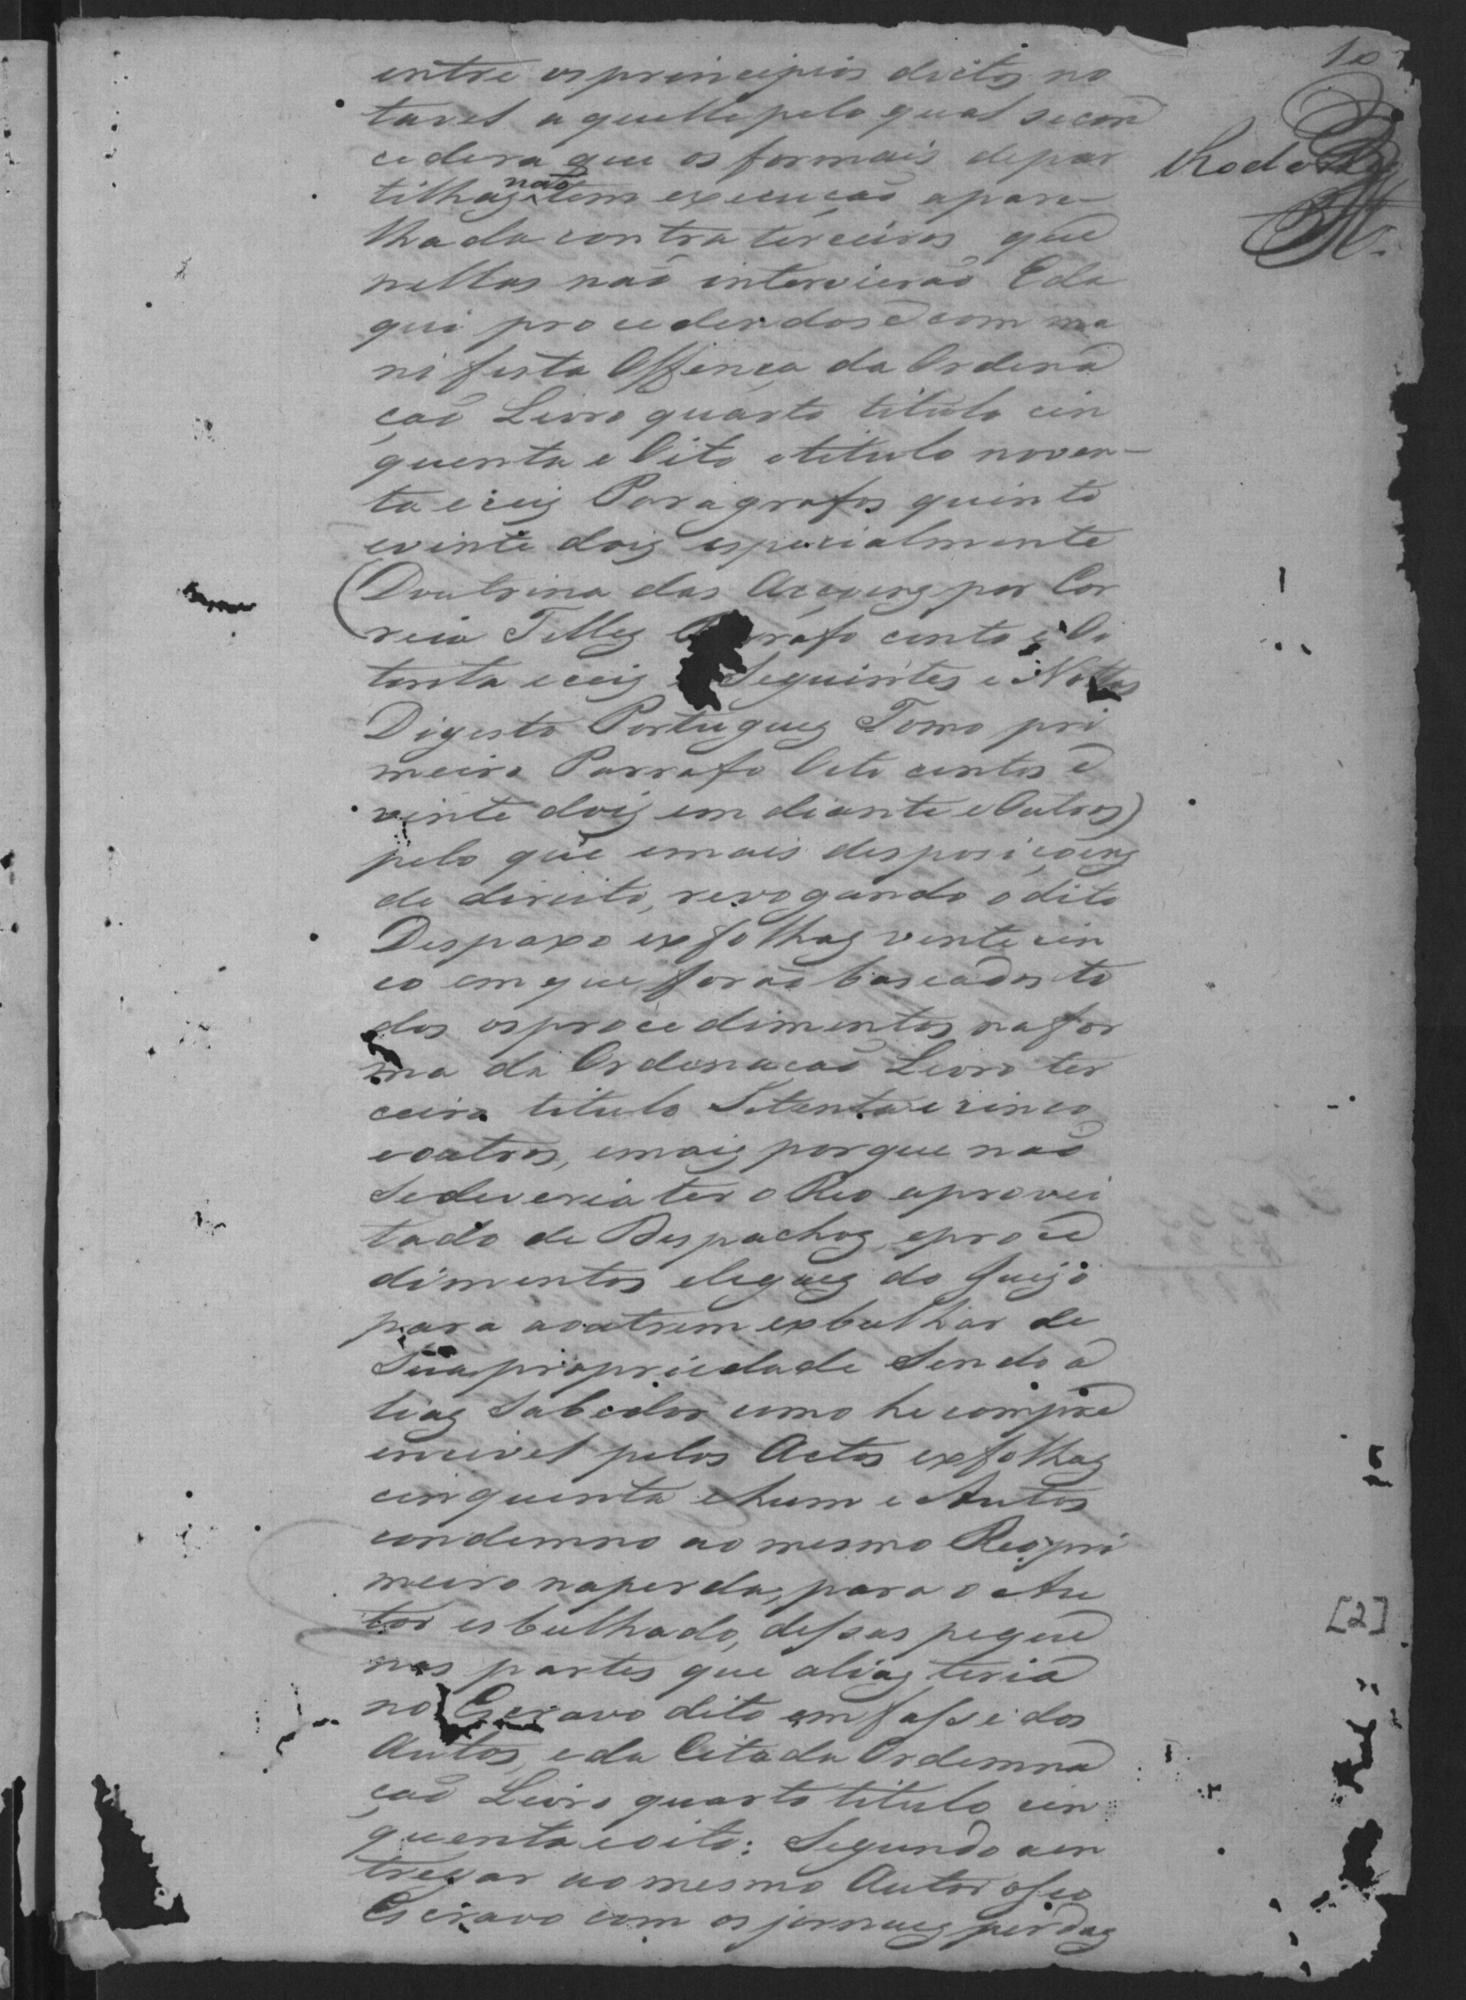 10
entre os principios dictos no
tavel aquelle pelo qual se con
cedera que os formais de par
tilhas não tem execução apare-
lhada contra terceiros que
nellas não intervierão E da
qui procedendose com ma
nifesta Offença da Ordena
ção Livro quarto titulo cin
quenta e Oito e titulo noven-
ta e seis Paragrafos quinto
e vinte dois especialmente
(Doutrina das Acçoens por Cor
reia Telles rafo cento e Oi
tenta e seis e Seguintes e Nottas
Digesto Portuguez Tomo pri
meiro Parrafo Oito centos e
vinte dois em diante e Outros)
pelo que e mais disposiçoens
de direito, revogando o dito
Despaxo ex folhas vinte cin
co em que forão baseados to
dos os procedimentos na for
ma da Ordenação Livro ter
ceiro titulo Setenta e cinco
e outros, e mais porque não
se deveria ter o Reo aprovei
tado de Despachos, e proce
dimentos elegaes do Juizo
para a outrem exbulhar de
Sua propriedade Sendo a
liaz Sabedor como he compre
encivel pelos Actos ex folhas
cinquenta e hum e Autos
condemno ao mesmo Reo pri
meiro na perda, para o Au
tor esbulhado, dessas peque
nas partes que alias teria
no Escravo dito em fasse dos
Autos, e da Citada Ordenna
ção Livro quarto titulo cin
quenta e oito: Segundo a en
tregar ao mesmo Autor o seo
Escravo com os jornaes perdas
[2]